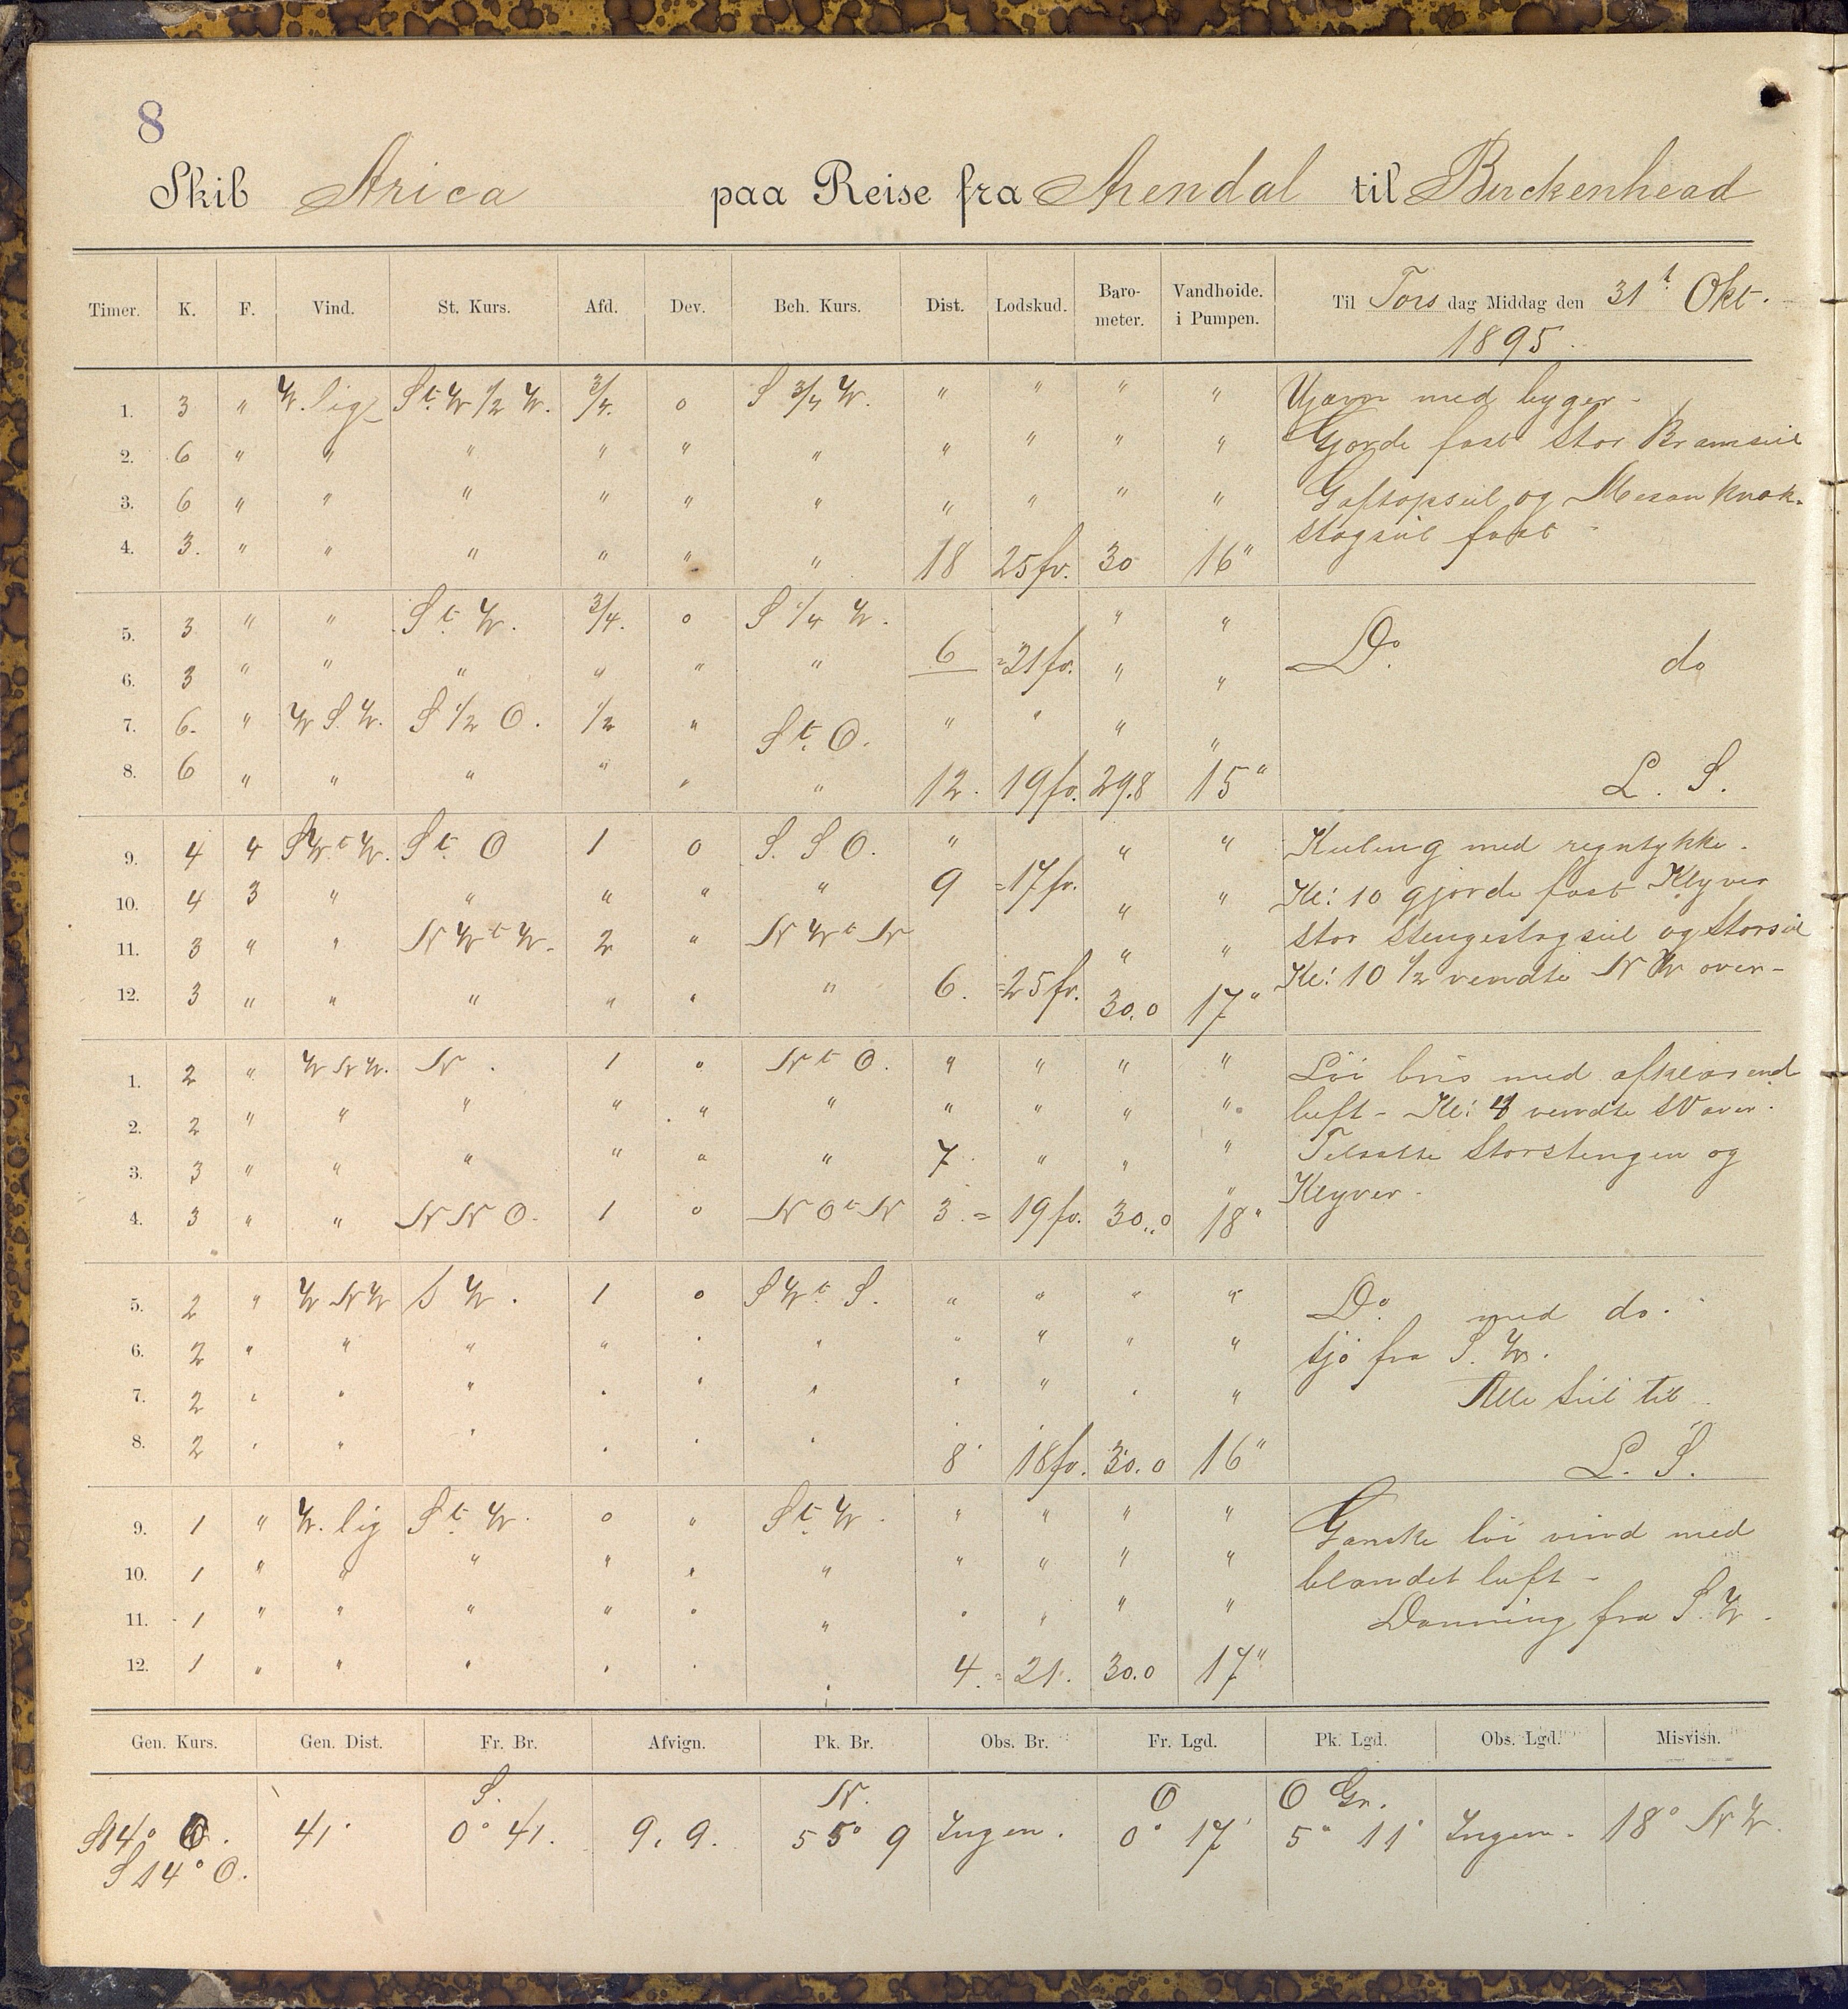 8
Skib Arica paa Reise fra Arendal til Birckenhead
Timer. K. F. Vind. St. Kurs. Afd. Dev. Beh. Kurs. Dist. Lodskud. Baro-meter. Vandhoide. i Pumpen. Til Tors dag Middag den 31t Okt. 1895.
1. 3 " W. lig St. W 1/2 W. 3/4. 0 S 3/4 W. " " " " Ujævn med byger -
2. 6 " " " " " " " " " " Gjorde fast Stor Bramseil
3. 6 " " " " " " " " " " Gaftopseil og Mesan knæk-
4. 3. " " " " " " 18 25 fv. 30 16" stagseil fast -
5. 3 " " St. W. 3/4. 0 S 1/4 W. " " Do. do
6. 3 " " " " " " 6 =21 fv. " "
7. 6. " W S. W. S 1/2 O. 1/2 " St. O. " " " "
8. 6 " " " " " " 12. 19 fv. 29.8 15" L. S.
9. 4 4 SW t W. St. O 1 0 S. S O. " " " Kuling med regntykke.
10. 4 3 " " " " " 9 =17 fv. " " Kl: 10 gjorde fast Klyver
11. 3 " " N W t W. 2 " N W t N " " stor stengestagseil og Storseil
12. 3 " " " " " " 6. =25 fv. 30.0 17" Kl: 10 1/2 vendte N W over -
1. 2 " W N W. N. 1 0 N t O. " " " " Löi bris med afklarend
2. 2 " " " " " " " " " " luft - Kl: 4 vendte SV over.
3. 3 " " " " " " 7 " " " Tilsatte Storstengen og
4. 3 " " N N O. 1 0 N O t N 3. = 19 fv. 30..0 18" Klyver.
5. 2 " W N W S W. 1 0 S W t S. " " " " Do. med do.
6. 2 " " " " " " " " " " sjö fra S. W.
7. 2 " " " " " " " " " " Alle Seil til
8. 2 " " " " " " 8 18 fv. 30.0 16" L. S.
9. 1 " W. lig St. W. 0 " St. W. " " " " Ganske löi vind med
10. 1 " " " " " " " " " " blandet luft -
11. 1 " " " " " " " " " " Dönning fra S. W.
12. 1 " " " " " " 4. = 21. 30.0 17"
Gen. Kurs. Gen. Dist. Fr. Br. Afvign. Pk. Br. Obs. Br. Fr. Lgd. Pk. Lgd. Obs. Lgd. Misvisn.
S. N. O O Gr.
S14° O. 41' 0° 41. 9, 9. 55° 9 Ingen. 0° 17' 5° 11' Ingen. 18° N W.
S 14° O.